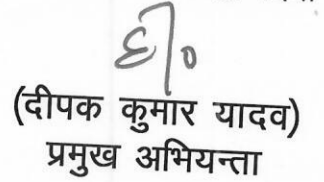 ह०/०
(दीपक कुमार यादव)
प्रमुख अभियन्ता